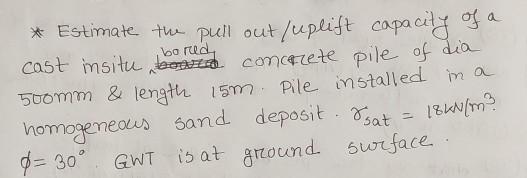 * Estimate the pull out/uplift capacity of a
cast insitu bored concrete pile of dia
500mm & length 15m. Pile installed in a
homogeneous sand deposit. γsat = 18kN/m³.
φ = 30°. GWT is at ground surface.